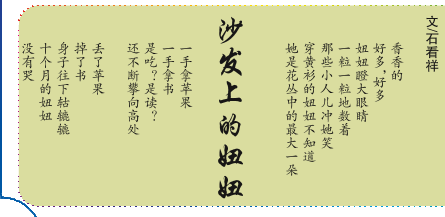 文/石看祥
香香的
好多，好多
妞妞瞪大眼睛
一粒一粒地数着
那些小人儿冲她笑
穿黄衫的妞妞不知道
她是花丛中的最大一朵
沙发上的妞妞
一手拿苹果
一手拿书
是吃？是读？
还不断攀向高处
丢了苹果
掉了书
身子往下轱辘辘
十个月的妞妞
没有哭